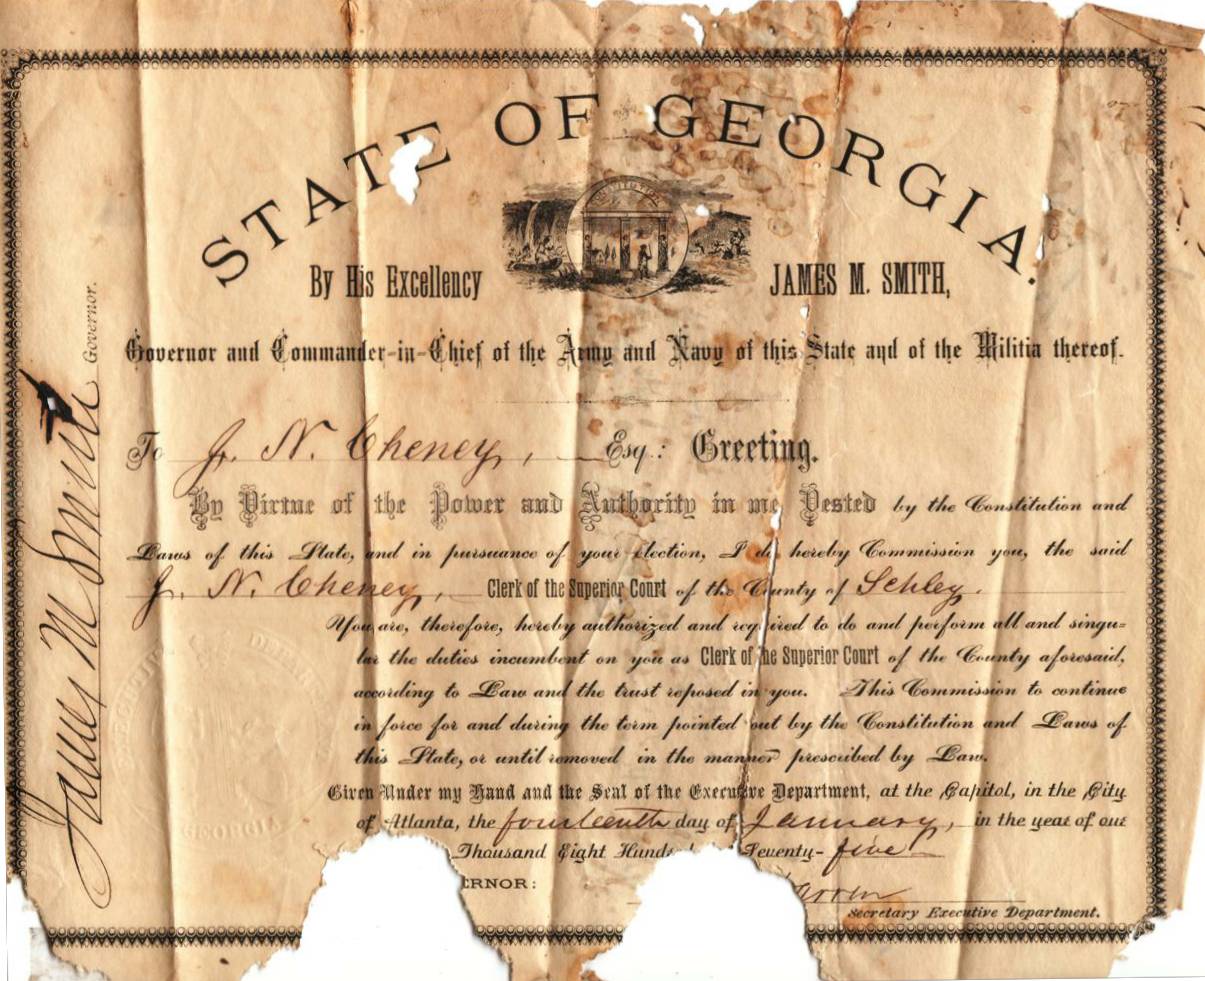 STATE OF GEORGIA.
CONSTITUTION
By His Excellency JAMES M. SMITH,
Governor and Commander-in-Chief of the Army and Navy of this State and of the Militia thereof.
To J. N. Cheney, Esq.: Greeting.
By Virtue of the Power and Authority in me Vested by the Constitution and
Laws of this State, and in pursuance of your election, I do hereby Commission you, the said
J. N. Cheney, Clerk of the Superior Court of the County of Schley.
You are, therefore, hereby authorized and required to do and perform all and singu-
lar the duties incumbent on you as Clerk of the Superior Court of the County aforesaid,
according to Law and the trust reposed in you. This Commission to continue
in force for and during the term pointed out by the Constitution and Laws of
this State, or until removed in the manner prescribed by Law.
Given Under my Hand and the Seal of the Executive Department, at the Capitol, in the City
of Atlanta, the fourteenth day of January, in the year of our
Thousand Eight Hund Seventy-five
ERNOR:
arren
Secretary Executive Department.
James M Smith Governor.
GEORGIA